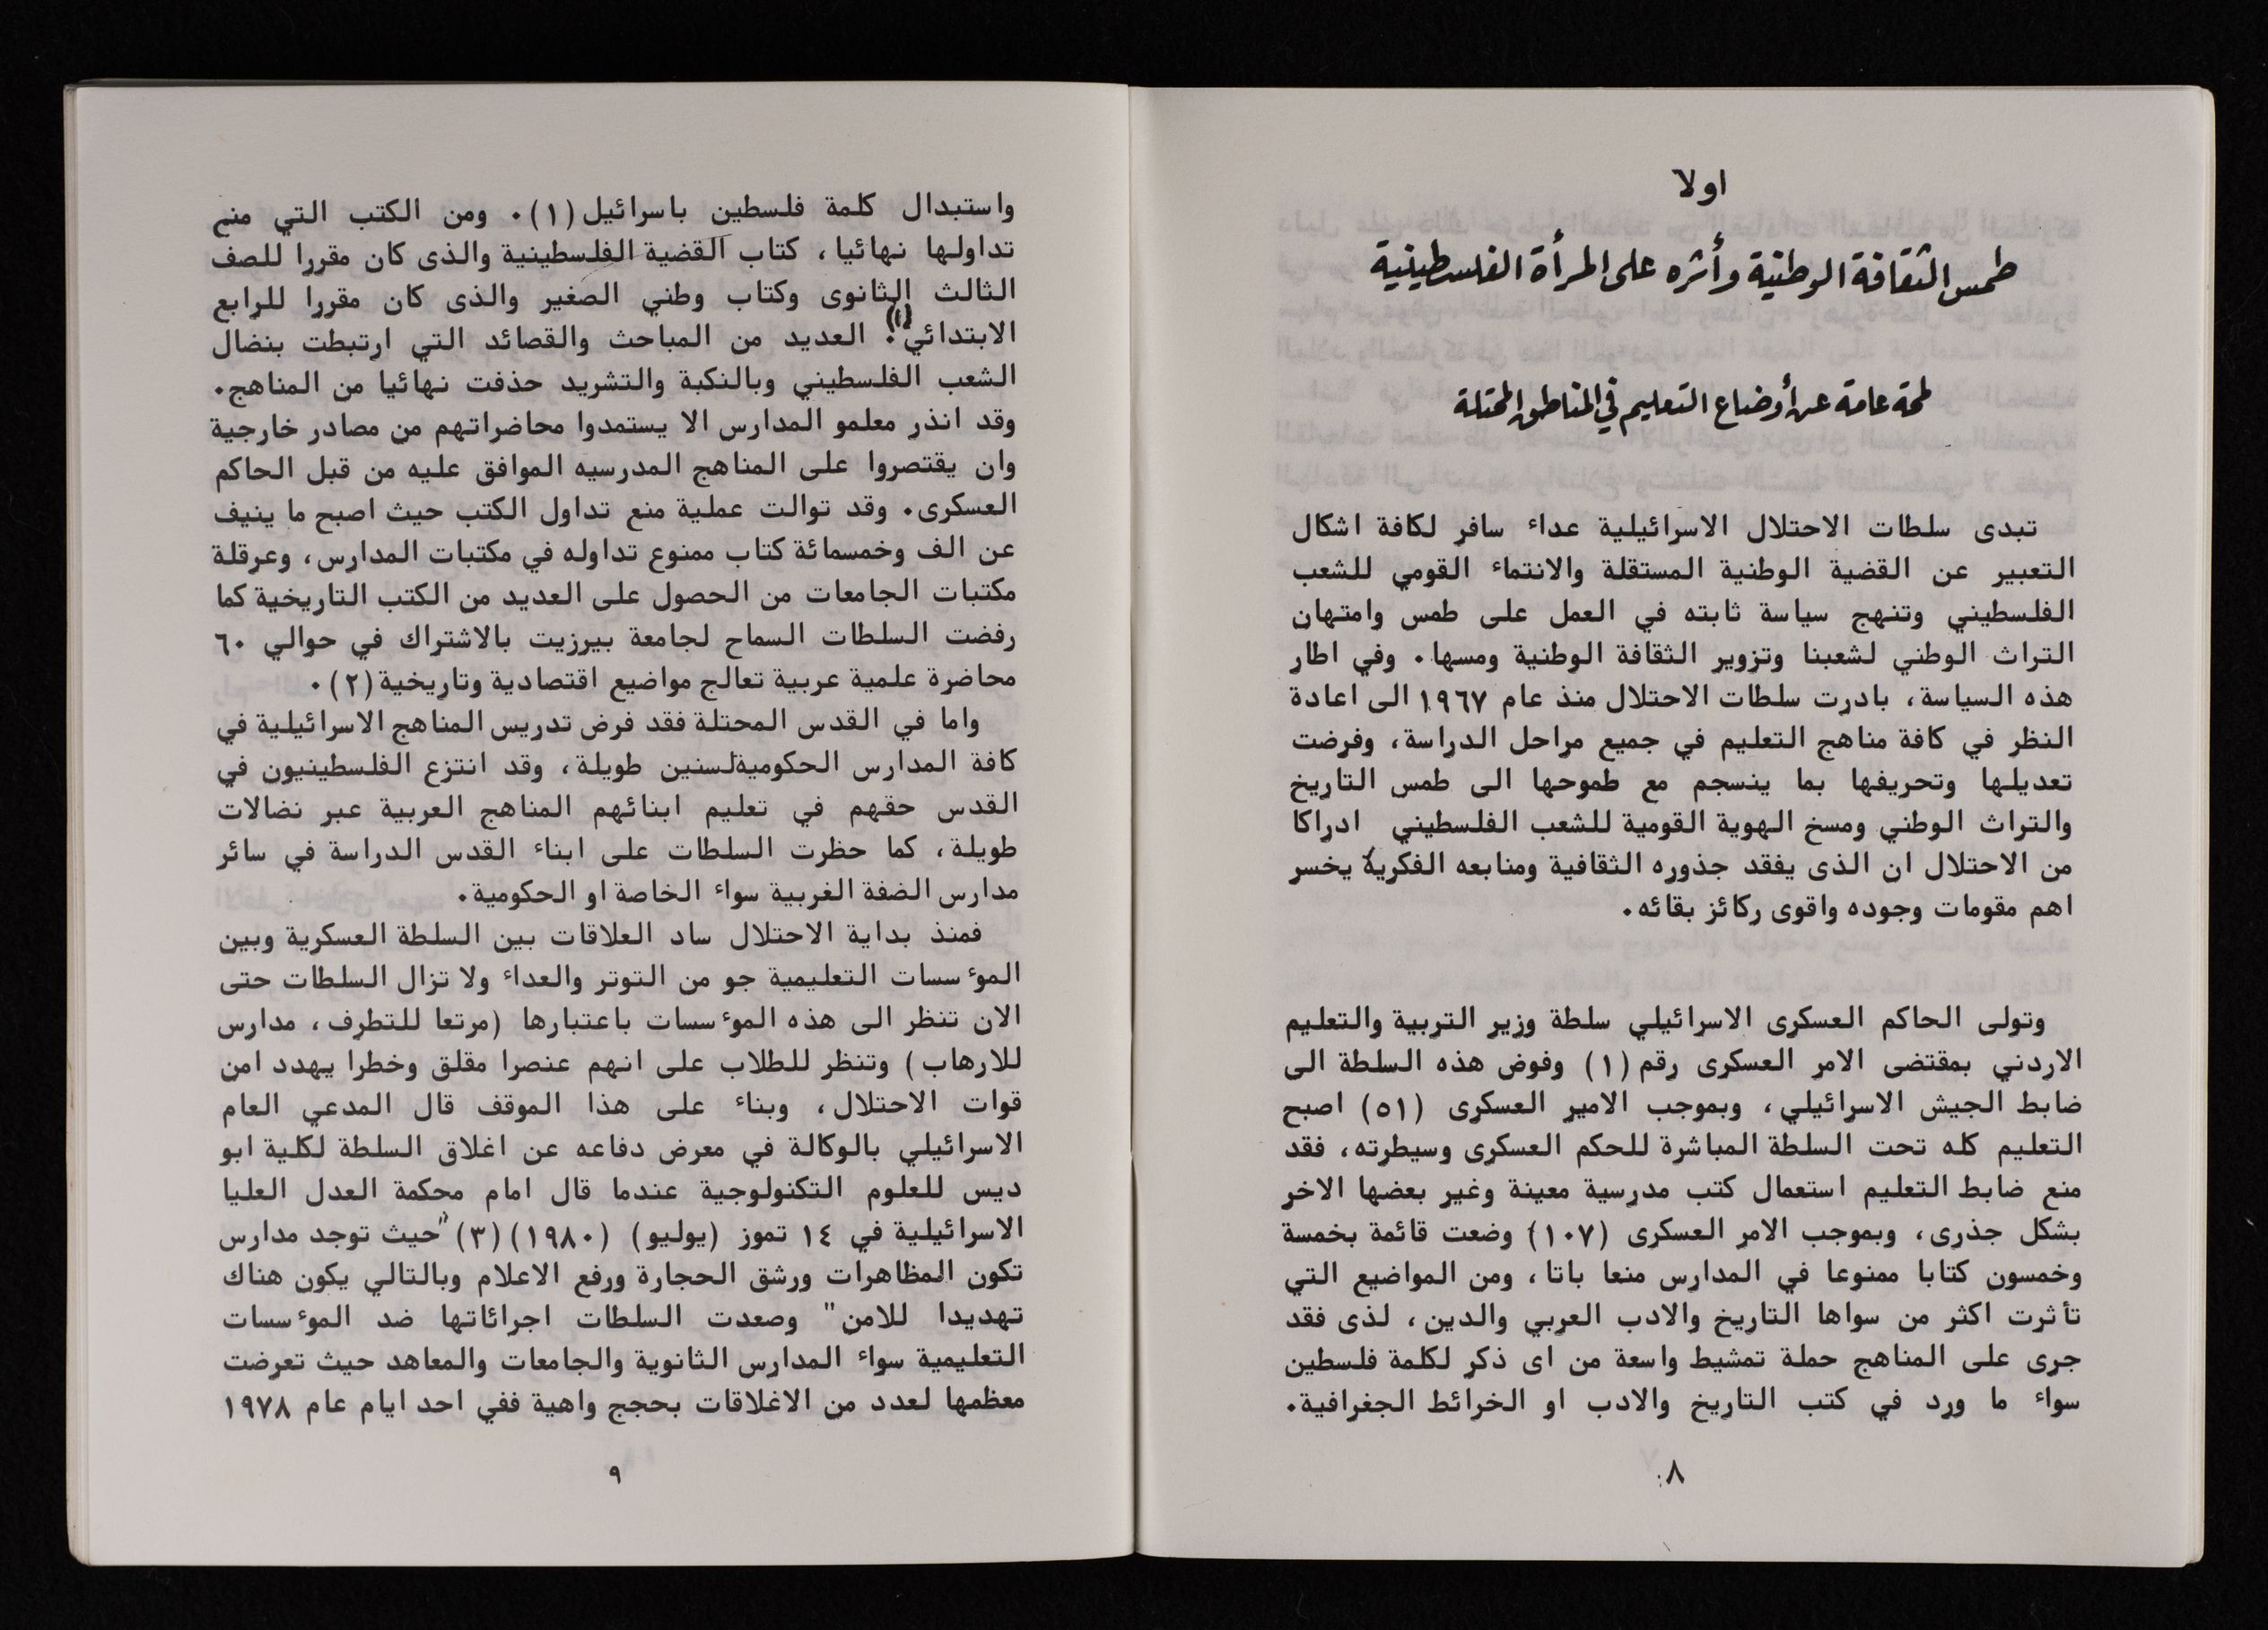 اولا
طمس الثقافة الوطنية وأثره على المرأة الفلسطينية
لمحة عامة عن أوضاع التعليم في المناطق المحتلة
تبدى سلطات الاحتلال الاسرائيلية عداء سافر لكافة اشكال
التعبير عن القضية الوطنية المستقلة والانتماء القومي للشعب
الفلسطيني وتنهج سياسة ثابته في العمل على طمس وامتهان
التراث الوطني لشعبنا وتزوير الثقافة الوطنية ومسها. وفي اطار
هذه السياسة، بادرت سلطات الاحتلال منذ عام ١٩٦٧ الى اعادة
النظر في كافة مناهج التعليم في جميع مراحل الدراسة، وفرضت
تعديلها وتحريفها بما ينسجم مع طموحها الى طمس التاريخ
والتراث الوطني ومسخ الهوية القومية للشعب الفلسطيني ادراكا
من الاحتلال ان الذى يفقد جذوره الثقافية ومنابعه الفكرية يخسر
اهم مقومات وجوده واقوى ركائز بقائه.
وتولى الحاكم العسكرى الاسرائيلي سلطة وزير التربية والتعليم
الاردني بمقتضى الامر العسكرى رقم (١) وفوض هذه السلطة الى
ضابط الجيش الاسرائيلي، وبموجب الامير العسكرى (٥١) اصبح
التعليم كله تحت السلطة المباشرة للحكم العسكرى وسيطرته، فقد
منع ضابط التعليم استعمال كتب مدرسية معينة وغير بعضها الاخر
بشكل جذرى، وبموجب الامر العسكرى (١٠٧) وضعت قائمة بخمسة
وخمسون كتابا ممنوعا في المدارس منعا باتا، ومن المواضيع التي
تأثرت اكثر من سواها التاريخ والادب العربي والدين، لذى فقد
جرى على المناهج حملة تمشيط واسعة من اى ذكر لكلمة فلسطين
سواء ما ورد في كتب التاريخ والادب او الخرائط الجغرافية.
٨
واستبدال كلمة فلسطين باسرائيل (١). ومن الكتب التي منع
تداولها نهائيا، كتاب القضية الفلسطينية والذى كان مقررا للصف
الثالث الثانوى وكتاب وطني الصغير والذى كان مقررا للرابع
الابتدائي(١). العديد من المباحث والقصائد التي ارتبطت بنضال
الشعب الفلسطيني وبالنكبة والتشريد حذفت نهائيا من المناهج.
وقد انذر معلمو المدارس الا يستمدوا محاضراتهم من مصادر خارجية
وان يقتصروا على المناهج المدرسيه الموافق عليه من قبل الحاكم
العسكرى. وقد توالت عملية منع تداول الكتب حيث اصبح ما ينيف
عن الف وخمسمائة كتاب ممنوع تداوله في مكتبات المدارس، وعرقلة
مكتبات الجامعات من الحصول على العديد من الكتب التاريخية كما
رفضت السلطات السماح لجامعة بيرزيت بالاشتراك في حوالي ٦٠
محاضرة علمية عربية تعالج مواضيع اقتصادية وتاريخية (٢).
واما في القدس المحتلة فقد فرض تدريس المناهج الاسرائيلية في
كافة المدارس الحكومية لسنين طويلة، وقد انتزع الفلسطينيون في
القدس حقهم في تعليم ابنائهم المناهج العربية عبر نضالات
طويلة، كما حظرت السلطات على ابناء القدس الدراسة في سائر
مدارس الضفة الغربية سواء الخاصة او الحكومية.
فمنذ بداية الاحتلال ساد العلاقات بين السلطة العسكرية وبين
المؤسسات التعليمية جو من التوتر والعداء ولا تزال السلطات حتى
الان تنظر الى هذه المؤسسات باعتبارها (مرتعا للتطرف، مدارس
للارهاب) وتنظر للطلاب على انهم عنصرا مقلق وخطرا يهدد امن
قوات الاحتلال، وبناء على هذا الموقف قال المدعي العام
الاسرائيلي بالوكالة في معرض دفاعه عن اغلاق السلطة لكلية ابو
ديس للعلوم التكنولوجية عندما قال امام محكمة العدل العليا
الاسرائيلية في ١٤ تموز (يوليو) (١٩٨٠) (٣) "حيث توجد مدارس
تكون المظاهرات ورشق الحجارة ورفع الاعلام وبالتالي يكون هناك
تهديدا للامن" وصعدت السلطات اجرائاتها ضد المؤسسات
التعليمية سواء المدارس الثانوية والجامعات والمعاهد حيث تعرضت
معظمها لعدد من الاغلاقات بحجج واهية ففي احد ايام عام ١٩٧٨
٩